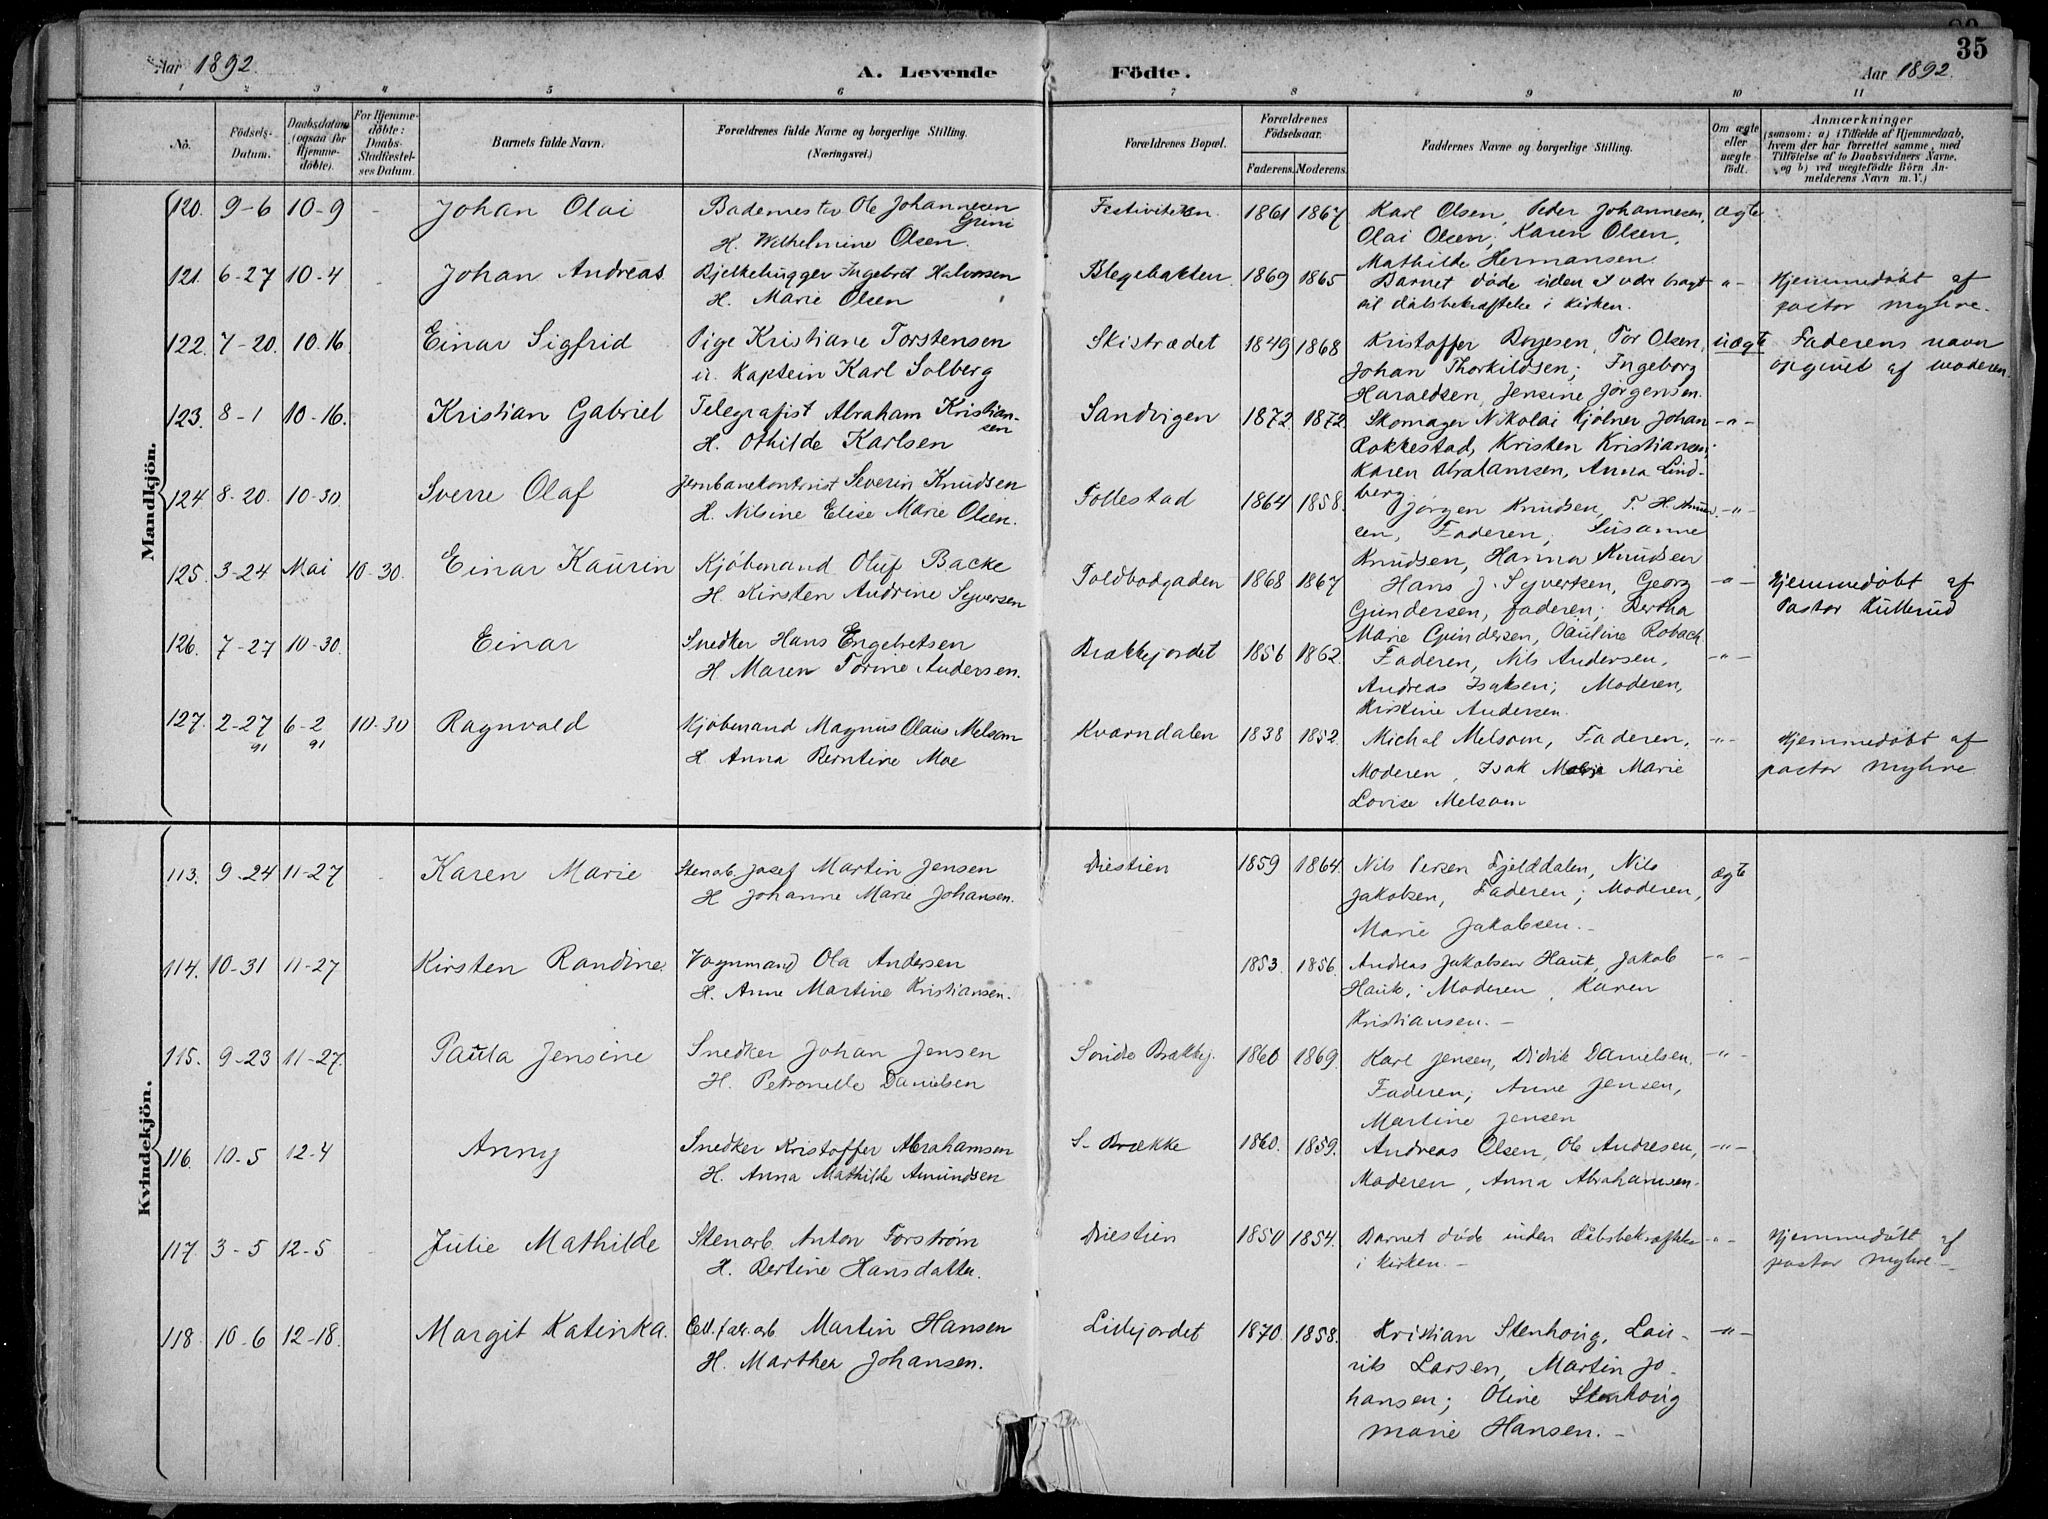 35
Aar 1892. A. Levende Födte. Aar 1892.
1 2 3 4 5 6 7 8 9 10 11
No. Födsels-Datum. Daabsdatum (ogsaa for Hjemmedöbte). For Hjemmedöbte: Daabs-Stadfæstelses Datum. Barnets fulde Navn. Forældrenes fulde Navne og borgerlige Stilling. (Næringsvei.) Forældrenes Bopæl. Forældrenes Födselsaar. Faderens. Moderens. Faddernes Navne og borgerlige Stilling. Om ægte eller uægte födt. Anmærkninger (saasom: a) i Tilfælde af Hjemmedaab, hvem der har forrettet samme, med Tilföielse af to Daabsvidners Navne, og b) ved uægtefödte Börn Anmelderens Navn m. V.)
Mandkjön.
120. 9-6 10-9 - Johan Olai Bademester Ole Johannesen Grini Festiviteten 1861 1867 Karl Olsen, Peder Johannesen, ægte
H. Wilhelmine Olsen. Olai Olsen; Karen Olsen,
Mathilde Hermansen
121. 6-27 10-4 - Johan Andreas Bjelkehugger Ingebret Halvorsen Blegebakken 1869 1865 Barnet døde uden at være bragt -"- Hjemmedøbt af
H. Marie Olsen til dåbsbekræftelse i kirken. pastor Myhre.
122. 7-20. 10.16 Einar Sigfrid Pige Kristiane Torstensen Skistrædet 1849 1868 Kristoffer Borgesen, Tor Olsen, uægte Faderens navn
u. Kaptein Karl Solberg Johan Thorkildsen; Ingeborg opgivet af moderen.
Haraldsen, Jensine Jørgensen.
123. 8-1 10-16. Kristian Gabriel Telegrafist Abraham Kristiansen Sandvigen 1872 1872 Skomager Nikolai Kjølner Johan -"-
H. Othilde Karlsen Rokkestad, Kristen Kristiansen;
Karen Abrahamsen, Anna Lindberg
124. 8-20. 10-30. Sverre Olaf Jernbanekontorist Severin Knudsen Tollestad 1864 1858. Jørgen Knudsen, T. H. -"-
H. Nilsine Elise Marie Olsen. Faderen; Susanne
Knudsen, Hanna Knudsen
125. 3-24 Mai 10-30. Einar Kaurin Kjøbmand Oluf Backe Toldbodgaden 1868 1867 Hans J. Syvertsen, Georg -"- Hjemmedøbt af
H. Kirsten Andrine Syversen Gundersen, faderen; Bertha Pastor Kullerud
Marie Gundersen, Pauline Robach
126. 7-27 10-30. Einar Snedker Hans Engebretsen Brækkejordet 1856 1862. Faderen, Nils Andersen, -"-
H. Maren Torine Andersen. Andreas Isaksen; Moderen,
Kristine Andersen.
127. 2-27 91 6-2 91 10-30 Ragnvald Kjøbmand Magnus Olaus Melsom Kværndalen 1838 1852. Michal Melsom, Faderen, -"- Hjemmedøbt af
H. Anna Berntine Moe Moderen, Isak Marie pastor Myhre
Lovise Melsom
Kvindekjön.
113. 9-24 11-27 - Karen Marie Stenarb. Josef Martin Jensen Driestien 1859 1864. Nils Persen Fjelddalen, Nils ægte
H Johanne Marie Johansen. Jakobsen, Faderen; Moderen,
Marie Jakobsen. -
114. 10-31 11-27 Kirsten Randine. Vognmand Ola Andersen 1853. 1856. Andreas Jakobsen Hauk, Jakob -"-
H. Anne Martine Kristiansen. Hauk; Moderen, Karen
Kristiansen. -
115. 9-23 11-27. Paula Jensine Snedker Johan Jensen Søndre Brækkej. 1860 1869. Karl Jensen, Didrik Danielsen, -"-
H. Petronelle Danielsen Faderen; Anne Jensen,
Martine Jensen
116. 10-5 12-4 Anny Snedker Kristoffer Abrahamsen S- Brække 1860. 1859. Andreas Olsen, Ole Andresen, -"-
H. Anna Mathilde Amundsen Moderen, Anna Abrahamsen.
117. 3-5 12-5 - Julie Mathilde Stenarb. Anton Forstrøm Driestien 1850 1854. Barnet døde inden dåbsbekræftelse -"- Hjemmedøbt af
H. Bertine Hansdatter. i kirken. - pastor Myhre. -
118. 10-6 12-18. Margit Katinka. Cell.fabr.arb Martin Hansen Lillejordet 1870. 1858. Kristian Stenhoug, Lau- -"-
H. Marthea Johansen. rits Larsen, Martin Jo-
hansen; Oline Stenhoug
Marie Hansen. -